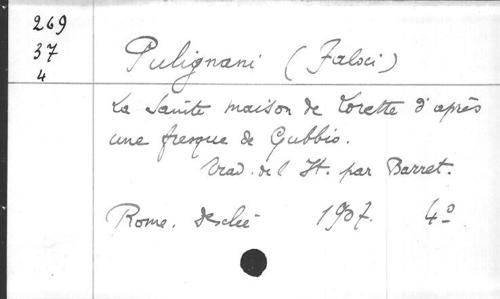 269
37
4
Pulignani (Faloci)
La Sainte maison de Lorette d'après
une fresque de Gubbio.
Trad. de l'It. par Barret.
Rome. Desclée 1907. 4º